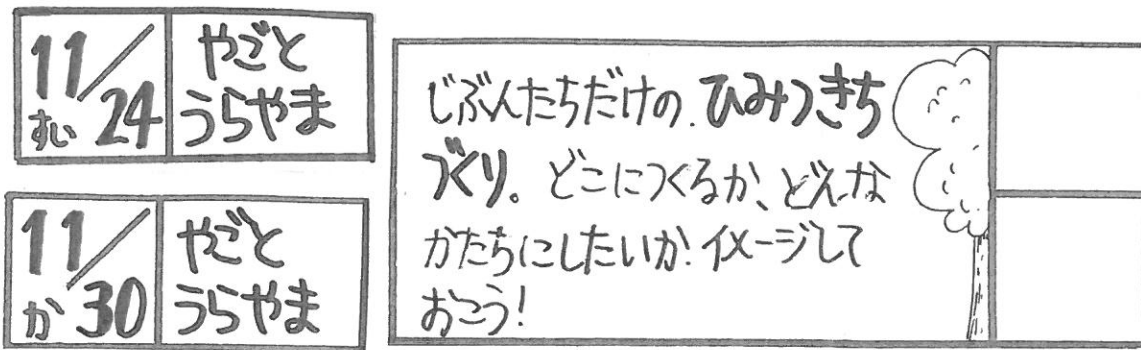 11/24
すい
やごと
うらやま
11/30
か
やごと
うらやま
じぶんたちだけの.ひみつきち
づくり。どこにつくるか、どんな
かたちにしたいか.イメージして
おこう!